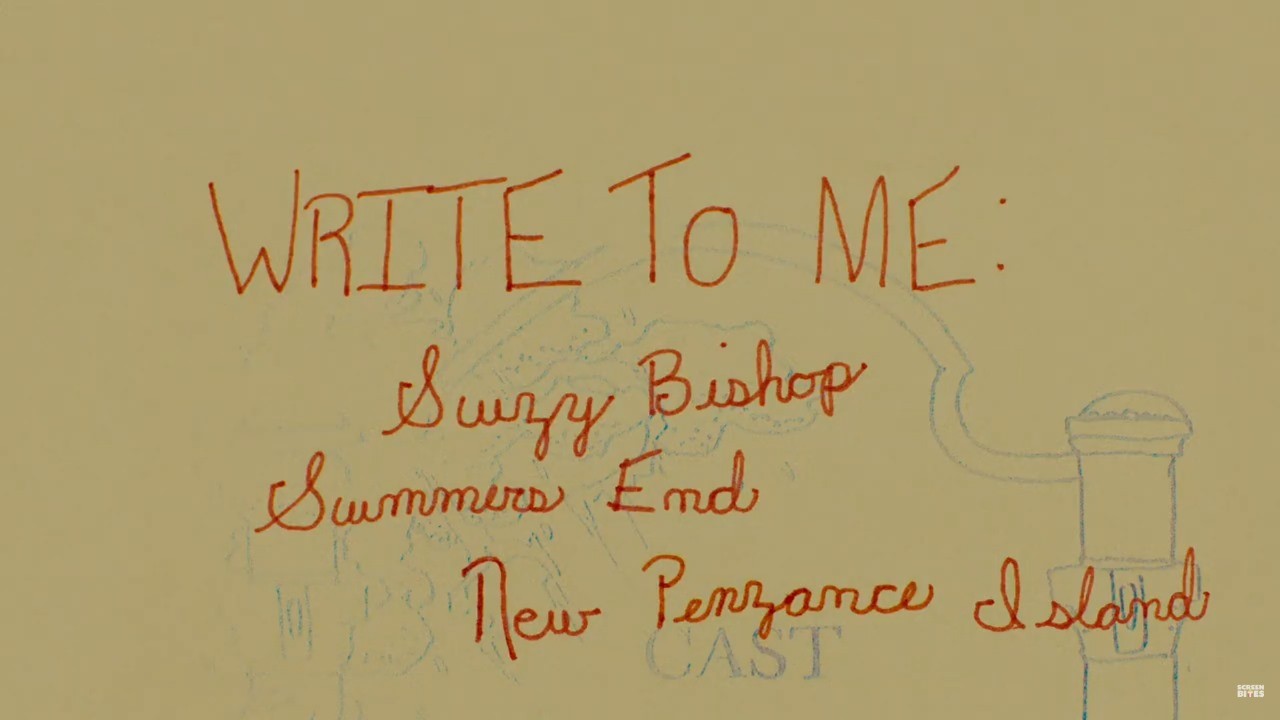 WRITE TO ME:
Suzy Bishop
Summers End
New Penzance Island
CAST
SCREEN
BITES